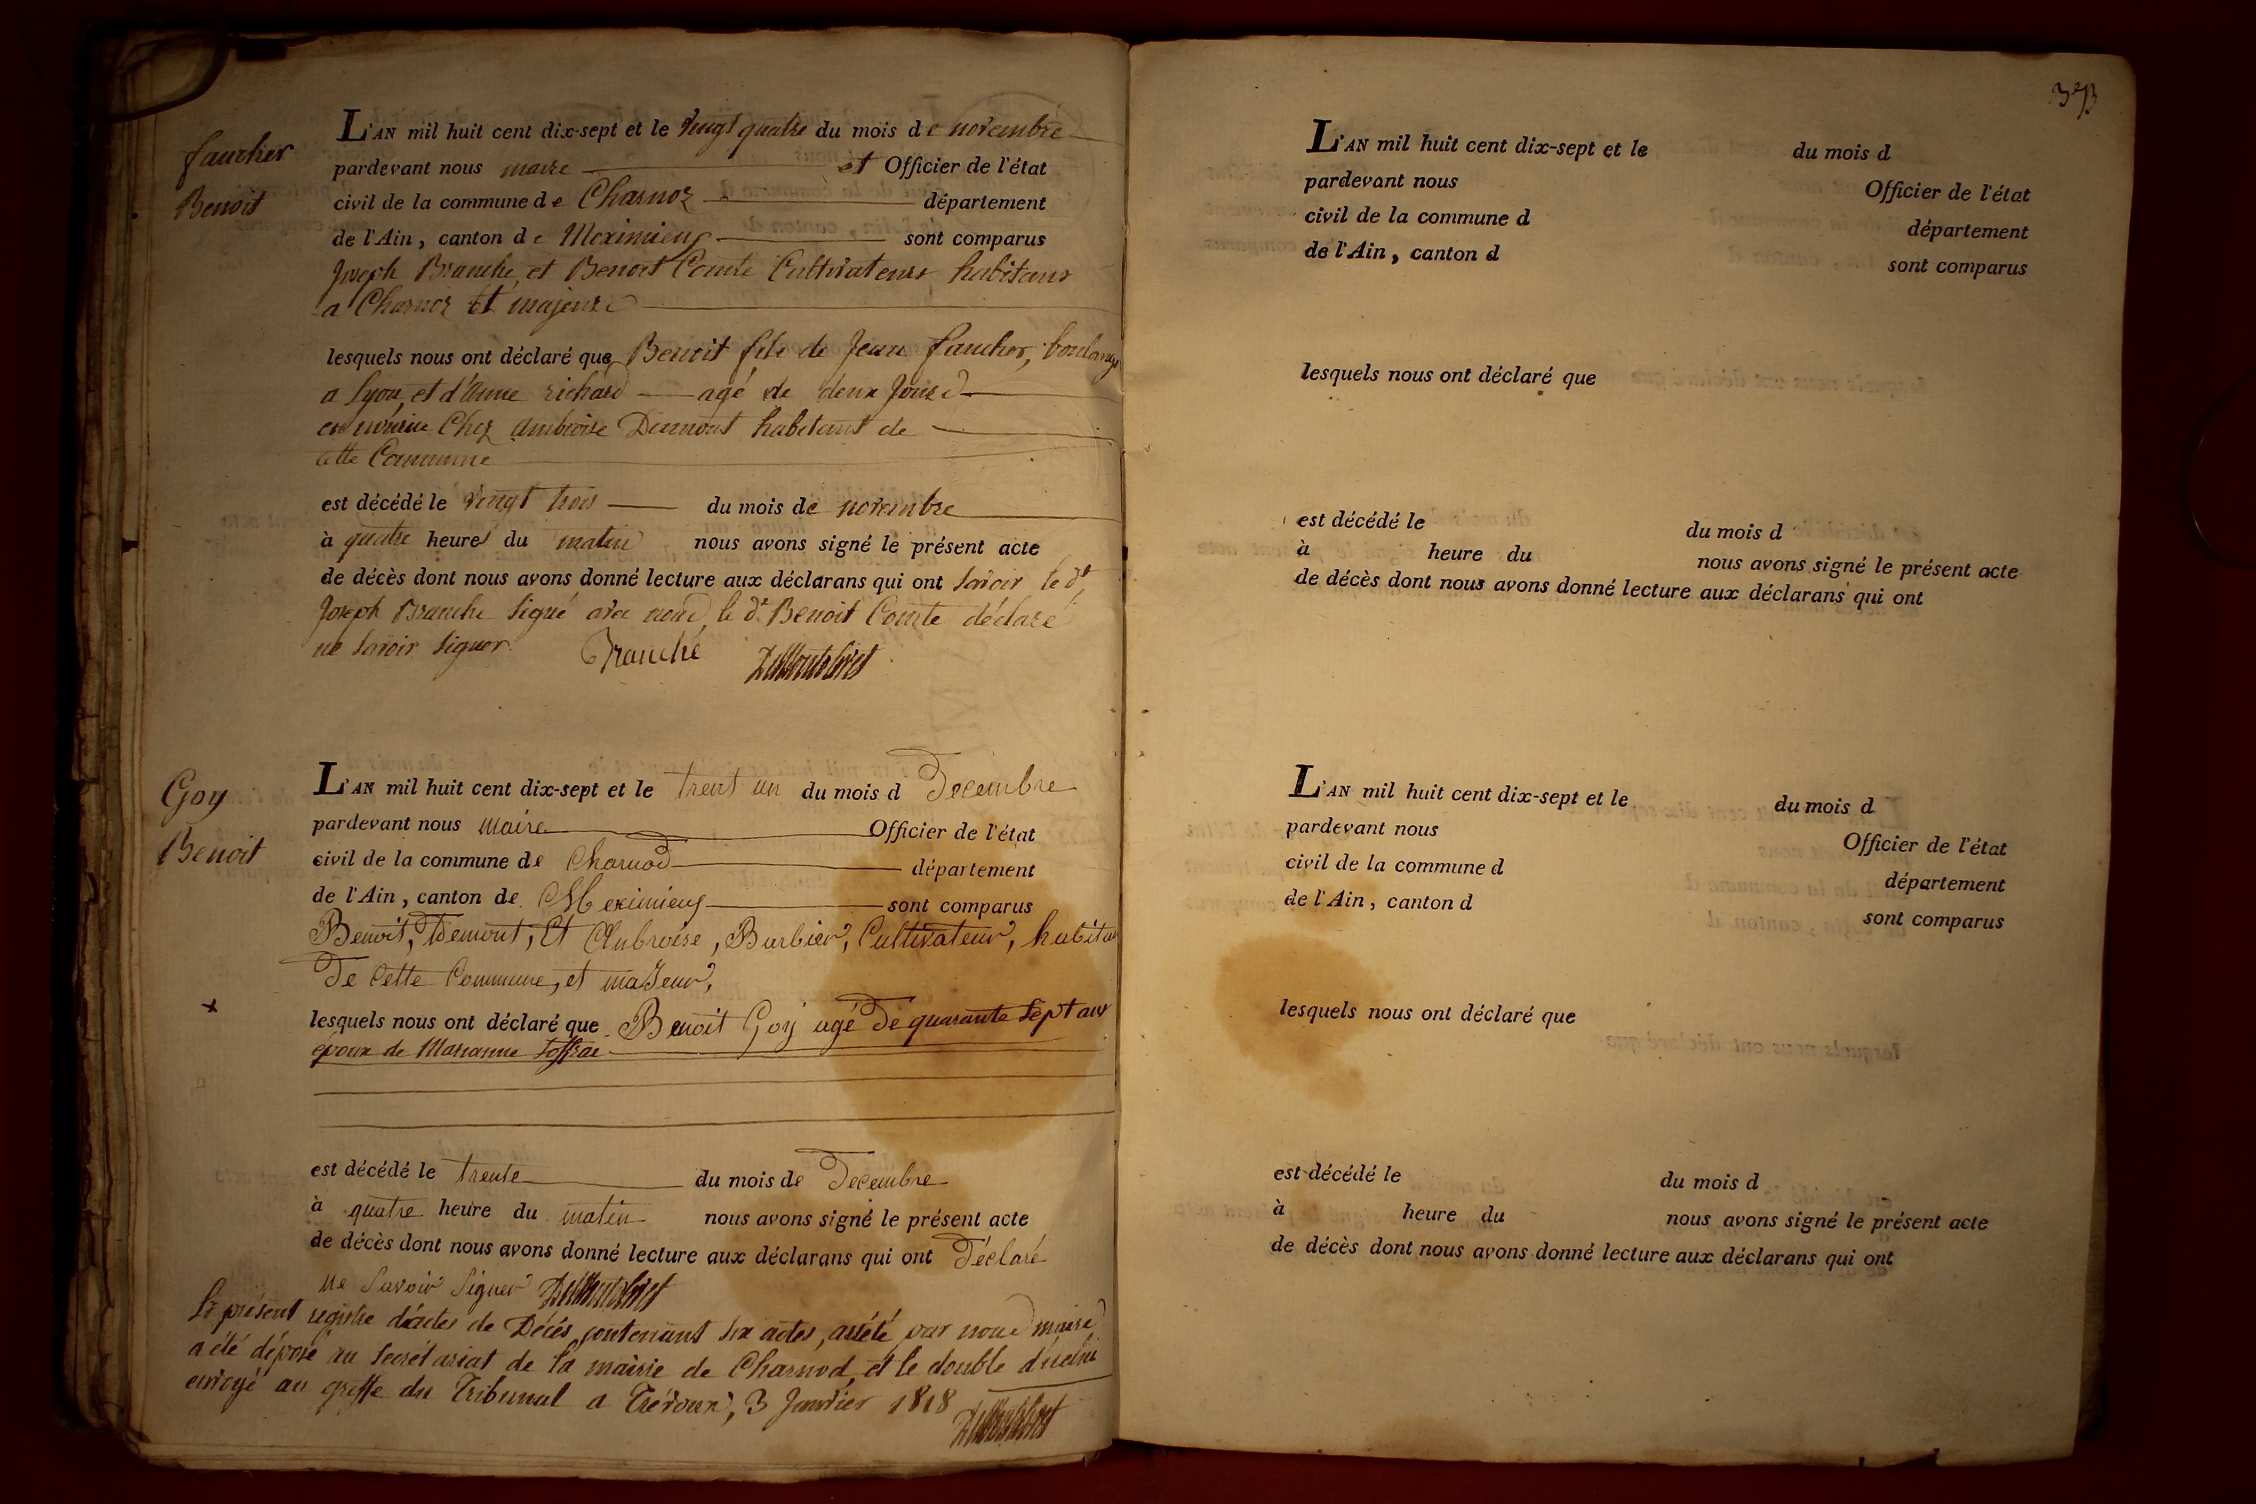 faucher
Benoit
L'AN mil huit cent dix-sept et le vingt quatre du mois de novembre
pardevant nous maire et Officier de l'état
civil de la commune de Charnoz département
de l'Ain, canton de Meximieux sont comparus
Joseph Branche et Benoit Comte Cultivateurs habitans
a Charnoz et majeurs
lesquels nous ont déclaré que Benoit fils de Jean faucher, boulanger
a Lyon, et d'Anne richard agé de deux Jours
en nourice Chez ambroise Dumont habitant de
cette Commune
est décédé le vingt trois du mois de novembre
à quatre heures du matin nous avons signé le présent acte
de décès dont nous avons donné lecture aux déclarans qui ont savoir le dt
Joseph Branche signé avec nous, le dt Benoit Comte déclaré
ne savoir signer. Branche
Goy
Benoit
L'AN mil huit cent dix-sept et le trent un du mois d Decembre
pardevant nous maire Officier de l'état
civil de la commune de Charnod département
de l'Ain, canton de Meximieux sont comparus
Benoit, Demont, Et Ambroise, Barbier, Cultivateur, habitan
De Cette Commune, et maJeur,
lesquels nous ont déclaré que Benoit Goy agé De quarante Sept ans
époux de Marianne
est décédé le trente du mois de Decembre
à quatre heure du matin nous avons signé le présent acte
de décès dont nous avons donné lecture aux déclarans qui ont Déclaré
ne Savoir Signer
Le présent registre d'actes de Décés contenant six actes, arrété par nous maire
a été déposé au secrétariat de la mairie de Charnod, et le double d'icelui
envoyé au greffe du Tribunal a Trévoux, 3 Janvier 1818
373
L'AN mil huit cent dix-sept et le du mois d
pardevant nous Officier de l'état
civil de la commune d département
de l'Ain, canton d sont comparus
lesquels nous ont déclaré que
est décédé le du mois d
à heure du nous avons signé le présent acte
de décès dont nous avons donné lecture aux déclarans qui ont
L'AN mil huit cent dix-sept et le du mois d
pardevant nous Officier de l'état
civil de la commune d département
de l'Ain, canton d sont comparus
lesquels nous ont déclaré que
est décédé le du mois d
à heure du nous avons signé le présent acte
de décès dont nous avons donné lecture aux déclarans qui ont